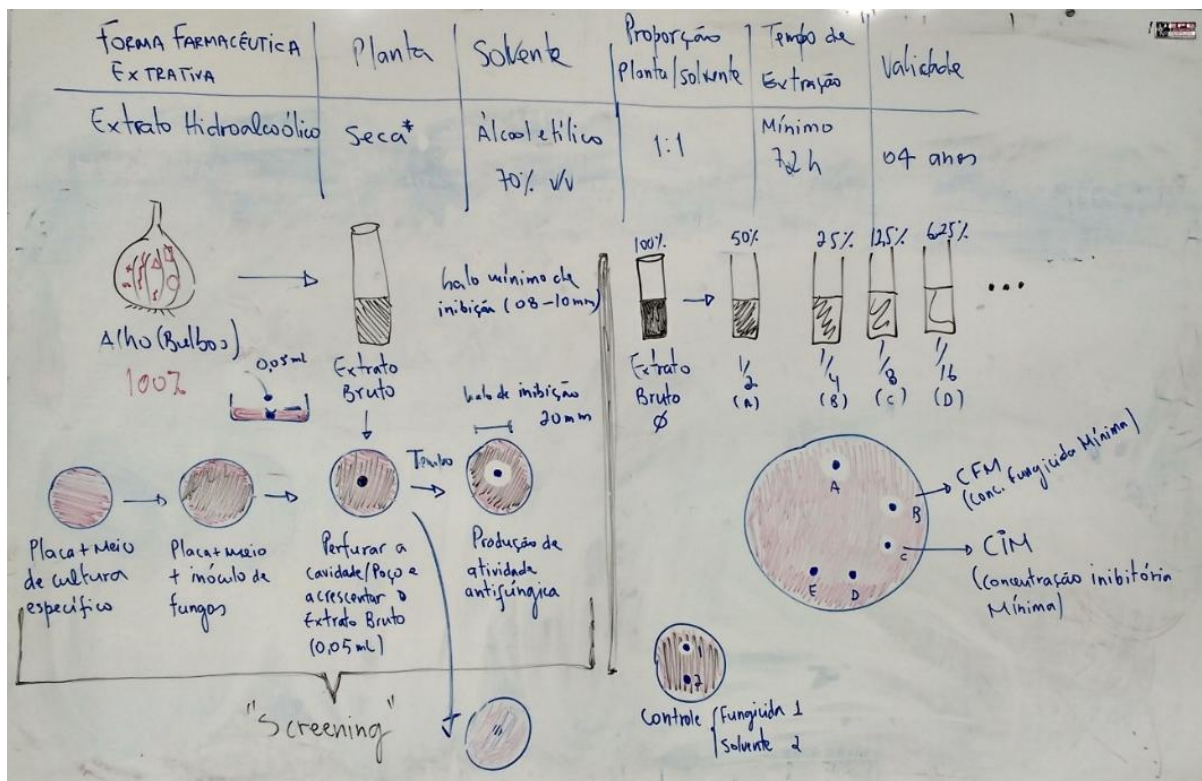 FORMA FARMACÊUTICA
EXTRATIVA
Planta
Solvente
Proporção
Planta/solvente
Tempo de
Extração
Validade
Extrato Hidroalcoólico
Seca*
Álcool etílico
70% v/v
1:1
Mínimo
72h
04 anos
Alho (Bulbos)
100%
0,05ml
Extrato
Bruto
halo mínimo de
inibição (08-10mm)
halo de inibição
20mm
Tempo
Placa+Meio
de cultura
específico
Placa+meio
+ inóculo de
fungos
Perfurar a
cavidade/Poço e
acrescentar o
Extrato Bruto
(0,05mL)
Produção de
atividade
antifúngica
"Screening"
100%
50%
25%
12,5%
6,25%
...
Extrato
Bruto
Ø
1/2
(A)
1/4
(B)
1/8
(C)
1/16
(D)
A
B
C
D
E
CFM
(Conc. Fungicida Mínima)
CIM
(concentração inibitória
Mínima)
1
2
Controle
Fungicida 1
Solvente 2